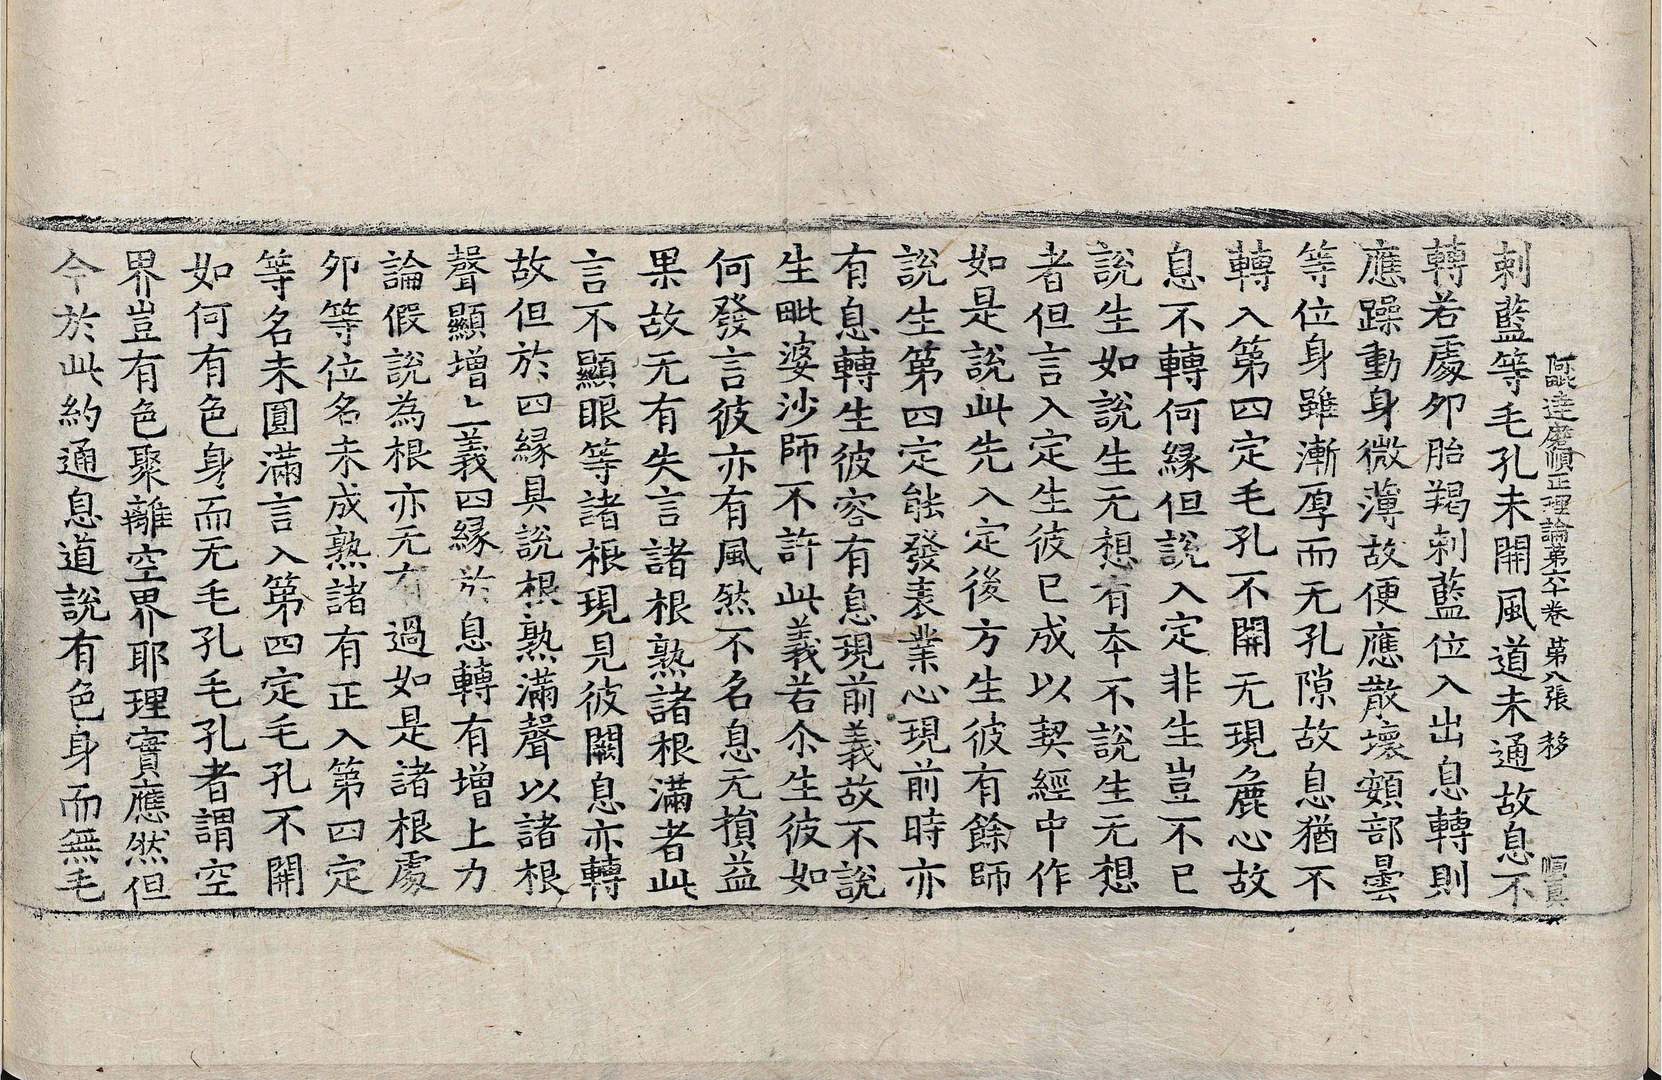 阿毗達磨順正理論第六十卷　第八張　移　順真
剌藍等毛孔未開風道未通故息不
轉若處夘胎羯剌藍位入出息轉則
應躁動身微薄故便應散壞頞部曇
等位身雖漸厚而无孔隙故息猶不
轉入第四定毛孔不開无現麁心故
息不轉何緣但說入定非生豈不已
說生如說生无想有本不說生无想
者但言入定生彼已成以契經中作
如是說此先入定後方生彼有餘師
說生第四定能發表業心現前時亦
有息轉生彼容有息現前義故不說
生毗婆沙師不許此義若尒生彼如
何發言彼亦有風然不名息无損益
果故无有失言諸根熟諸根滿者此
言不顯眼等諸根現見彼闕息亦轉
故但於四緣具說根熟滿聲以諸根
聲顯增上義四緣於息轉有增上力
論假說為根亦无有過如是諸根處
夘等位名未成熟諸有正入第四定
等名未圓滿言入第四定毛孔不開
如何有色身而无毛孔毛孔者謂空
界豈有色聚離空界耶理實應然但
今於此約通息道說有色身而無毛